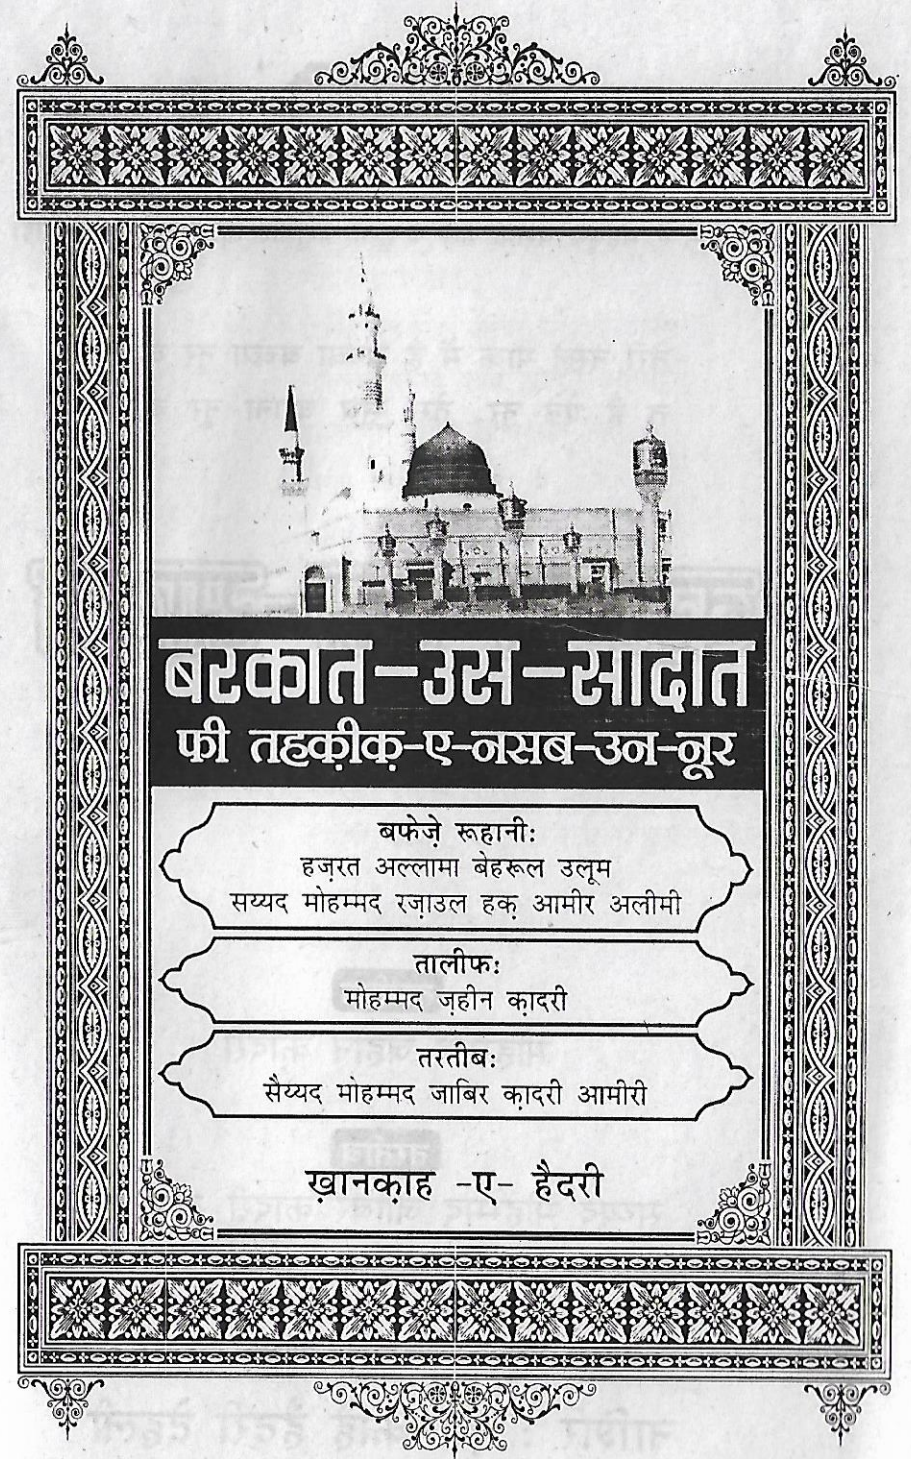 बरकात-उस-सादात
फी तहक़ीक़-ए-नसब-उन-नूर
बफेज़े रूहानी:
हज़रत अल्लामा बेहरूल उलूम
सय्यद मोहम्मद रज़ाउल हक़ आमीर अलीमी
तालीफ:
मोहम्मद ज़हीन क़ादरी
तरतीब:
सैय्यद मोहम्मद जाबिर क़ादरी आमीरी
ख़ानक़ाह -ए- हैदरी